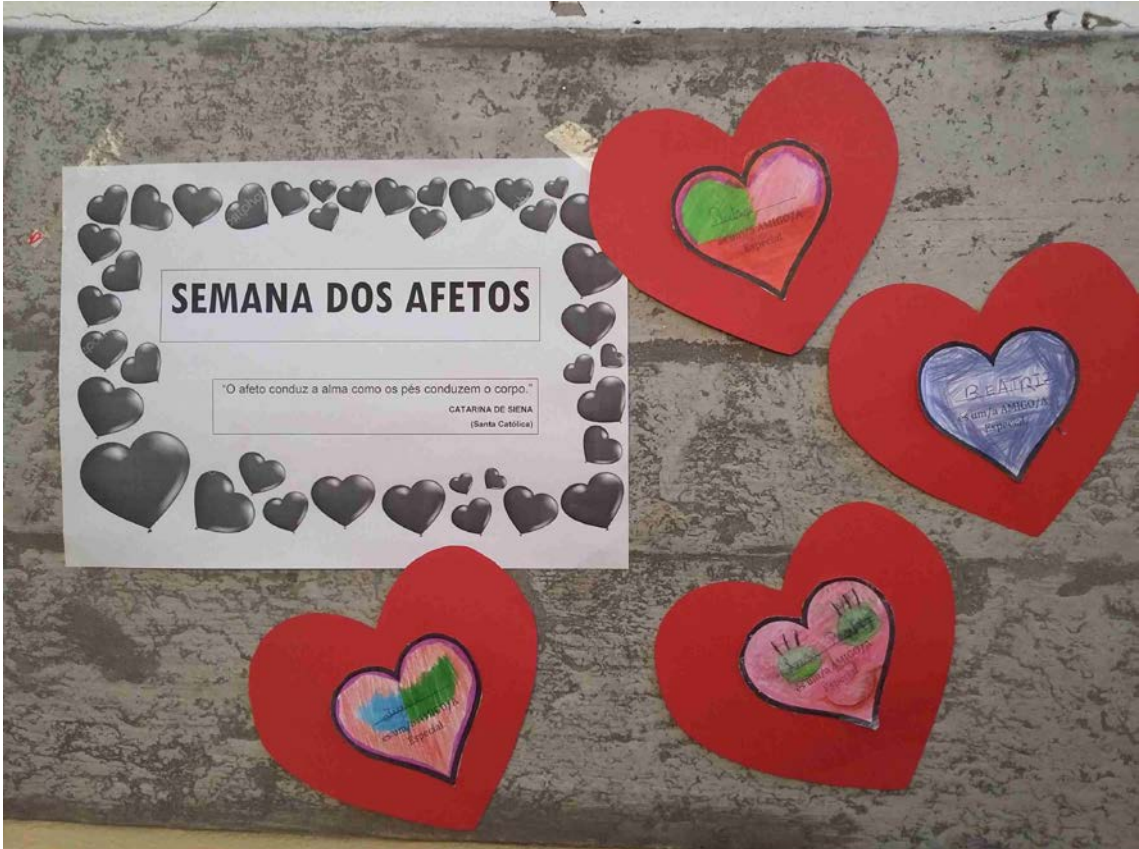 SEMANA DOS AFETOS
"O afeto conduz a alma como os pés conduzem o corpo."
CATARINA DE SIENA
(Santa Católica)
és um/a AMIGO/A
Especial
BEATRIZ
és um/a AMIGO/A
Especial
és um/a AMIGO/A
Especial
és um/a AMIGO/A
Especial